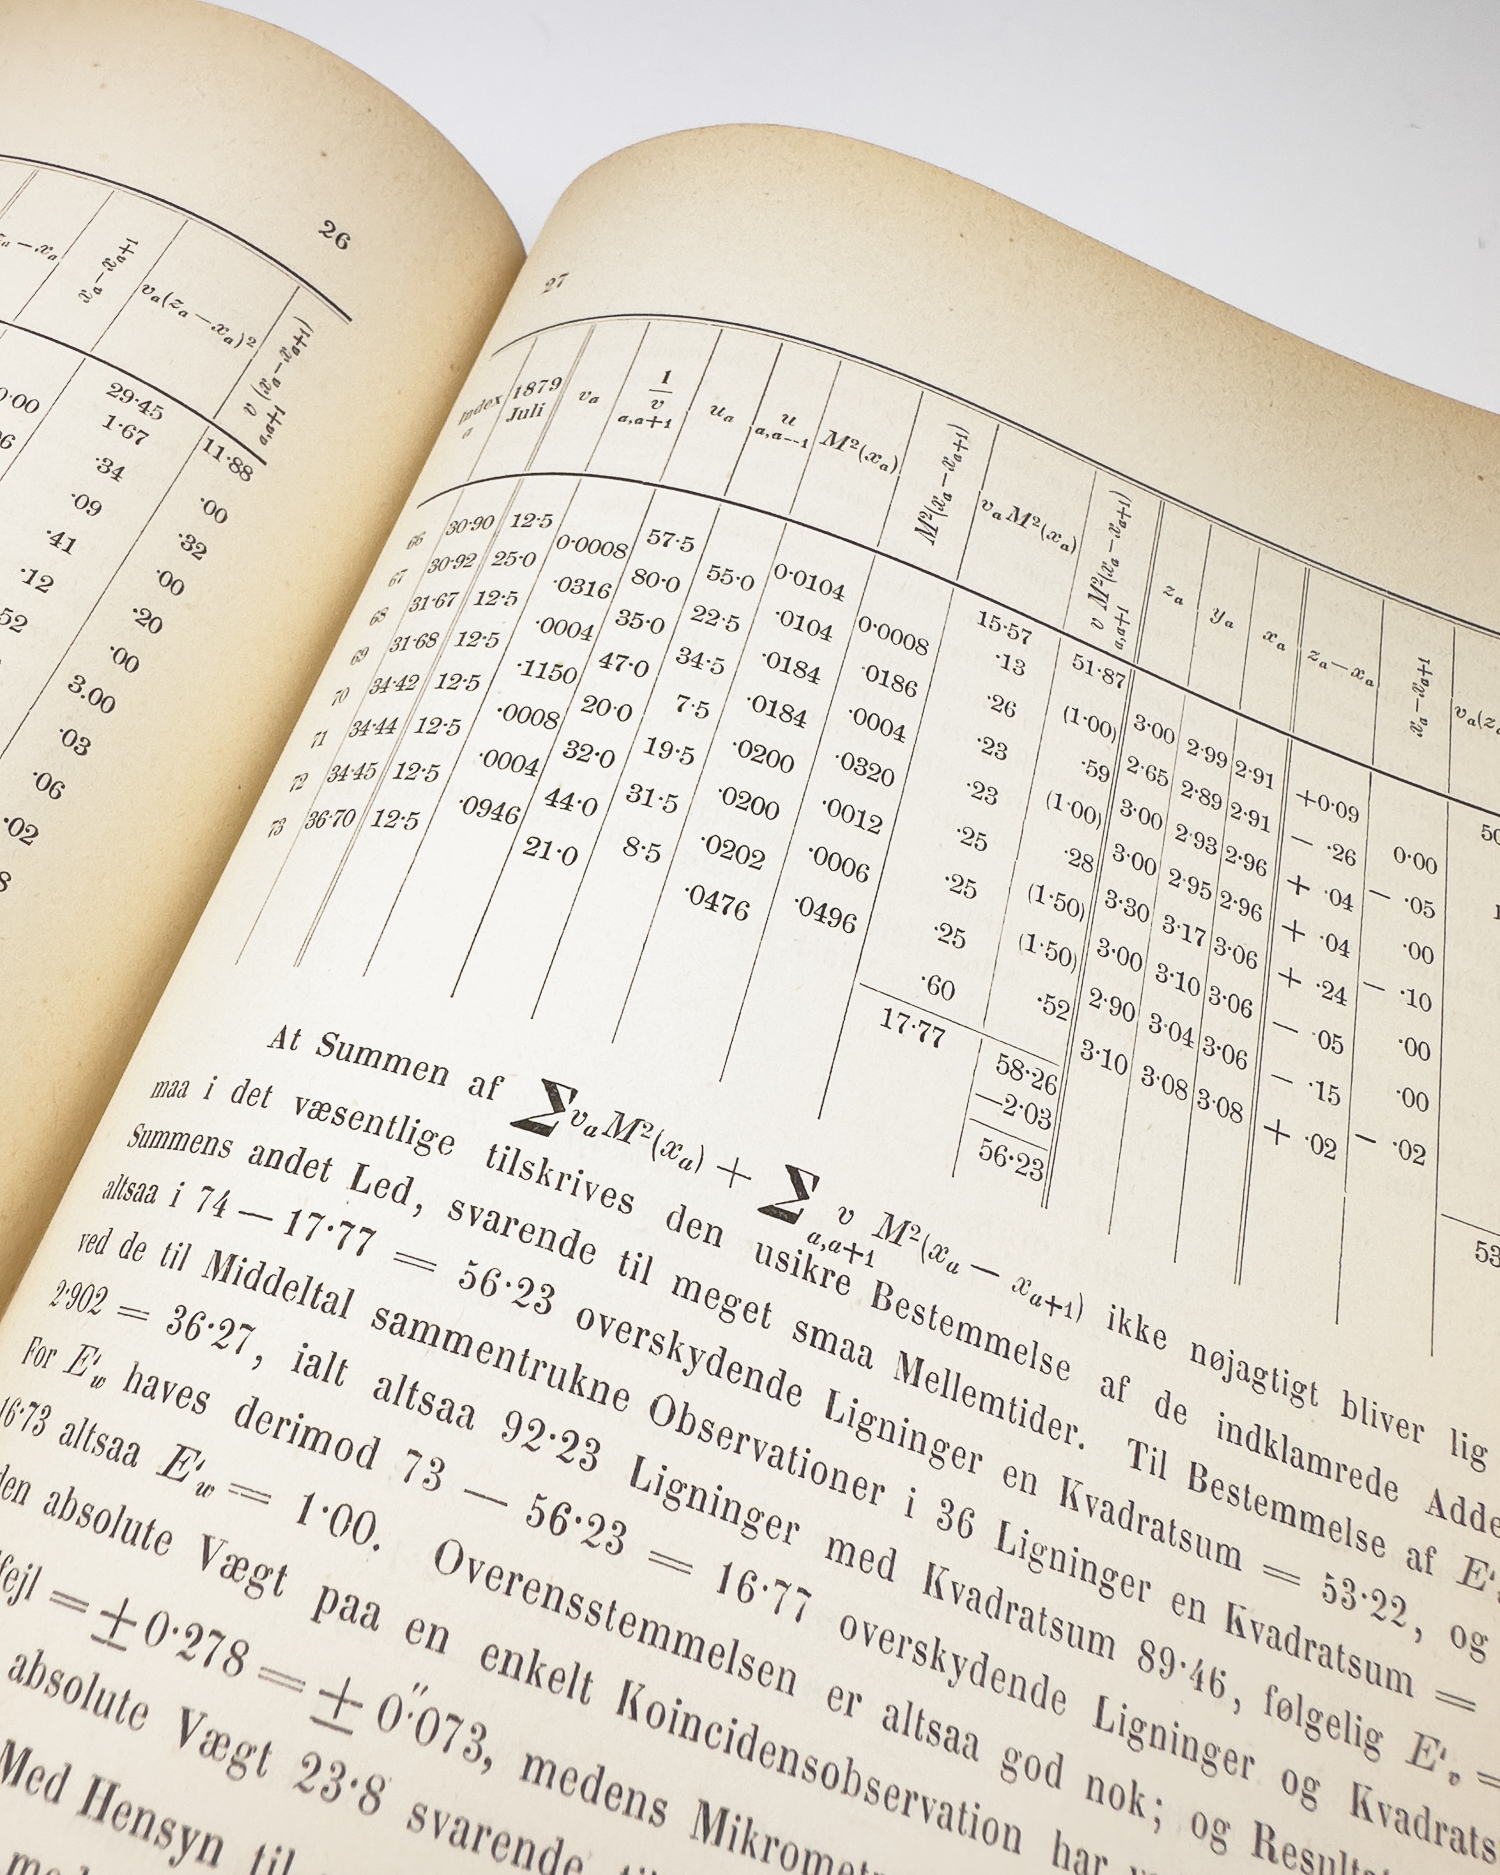 26
xₐ — xₐ₊₁
vₐ(zₐ — xₐ)²
v (xₐ — xₐ₊₁)
a,a+1
29·45
1·67 11·88
·34 ·00
·09 ·32
·41 ·00
·12 ·20
·00
3.00
·03
·06
·02
27
Index a 1879 Juli vₐ 1/v a,a+1 uₐ u a,a—1 M²(xₐ) M²(xₐ — xₐ₊₁) vₐM²(xₐ) v M²(xₐ — xₐ₊₁) a,a+1 zₐ yₐ xₐ zₐ — xₐ xₐ — xₐ₊₁
15·57 51·87
66 30·90 12·5 57·5 0·0104 ·13 3·00 2·99 2·91 +0·09
0·0008 55·0 0·0008 (1·00) 0·00
67 30·92 25·0 80·0 ·0104 ·26 2·65 2·89 2·91 — ·26
·0316 22·5 ·0186 ·59 — ·05
68 31·67 12·5 35·0 ·0184 ·23 3·00 2·93 2·96 + ·04
·0004 34·5 ·0004 (1·00) ·00
69 31·68 12·5 47·0 ·0184 ·23 3·00 2·95 2·96 + ·04
·1150 7·5 ·0320 ·28 — ·10
70 34·42 12·5 20·0 ·0200 ·25 3·30 3·17 3·06 + ·24
·0008 19·5 ·0012 (1·50) ·00
71 34·44 12·5 32·0 ·0200 ·25 3·00 3·10 3·06 — ·05
·0004 31·5 ·0006 (1·50) ·00
72 34·45 12·5 44·0 ·0202 ·25 2·90 3·04 3·06 — ·15
·0946 8·5 ·0496 ·52 — ·02
73 36·70 12·5 21·0 ·0476 ·60 3·10 3·08 3·08 + ·02
17·77 58·26
—2·03
56·23
At Summen af ΣvₐM²(xₐ) + Σ v a,a+1 M²(xₐ — xₐ₊₁) ikke nøjagtigt bliver lig
maa i det væsentlige tilskrives den usikre Bestemmelse af de indklamrede
Summens andet Led, svarende til meget smaa Mellemtider. Til Bestemmelse af
altsaa i 74 — 17·77 = 56·23 overskydende Ligninger en Kvadratsum = 53·22, og
ved de til Middeltal sammentrukne Observationer i 36 Ligninger en Kvadratsum =
2·902 = 36·27, ialt altsaa 92·23 Ligninger med Kvadratsum 89·46, følgelig E'ᵥ =
For E'w haves derimod 73 — 56·23 = 16·77 overskydende Ligninger og
16·73 altsaa E'w = 1·00. Overensstemmelsen er altsaa god nok; og
den absolute Vægt paa en enkelt Koincidensobservation har
= ±0·278 = ± 0″·073, medens
absolute Vægt 23·8 svarende
Med Hensyn til